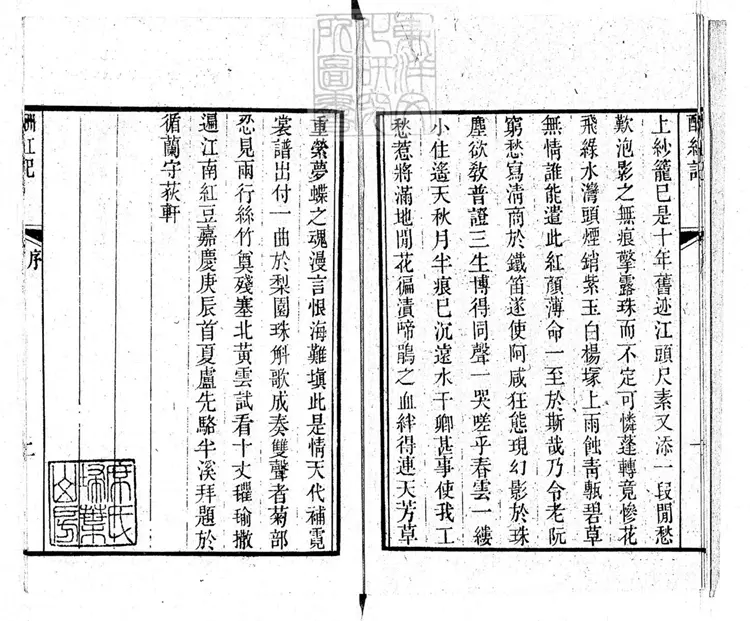 酬紅記
上紗籠已是十年舊迹江頭尺素又添一段閒愁
歎泡影之無痕擎露珠而不定可憐蓬轉竟慘花
飛綠水灣頭煙銷紫玉白楊塚上雨蝕靑甎碧草
無情誰能遣此紅顏薄命一至於斯哉乃令老阮
窮愁寫淸商於鐵笛遂使阿咸狂態現幻影於珠
塵欲敎普證三生博得同聲一哭嗟乎春雲一縷
小住遙天秋月半痕已沉遠水干卿甚事使我工
愁惹將滿地閒花徧漬啼鵑之血絆得連天芳草
重縈夢蝶之魂漫言恨海難塡此是情天代補霓
裳譜出付一曲於梨園珠斛歌成奏雙聲者菊部
忍見兩行絲竹奠殘塞北黃雲試看十丈氍毹撒
遍江南紅豆嘉慶庚辰首夏盧先駱半溪拜題於
循蘭守荻軒
酬紅記
序
二
東洋文化研究所圖書